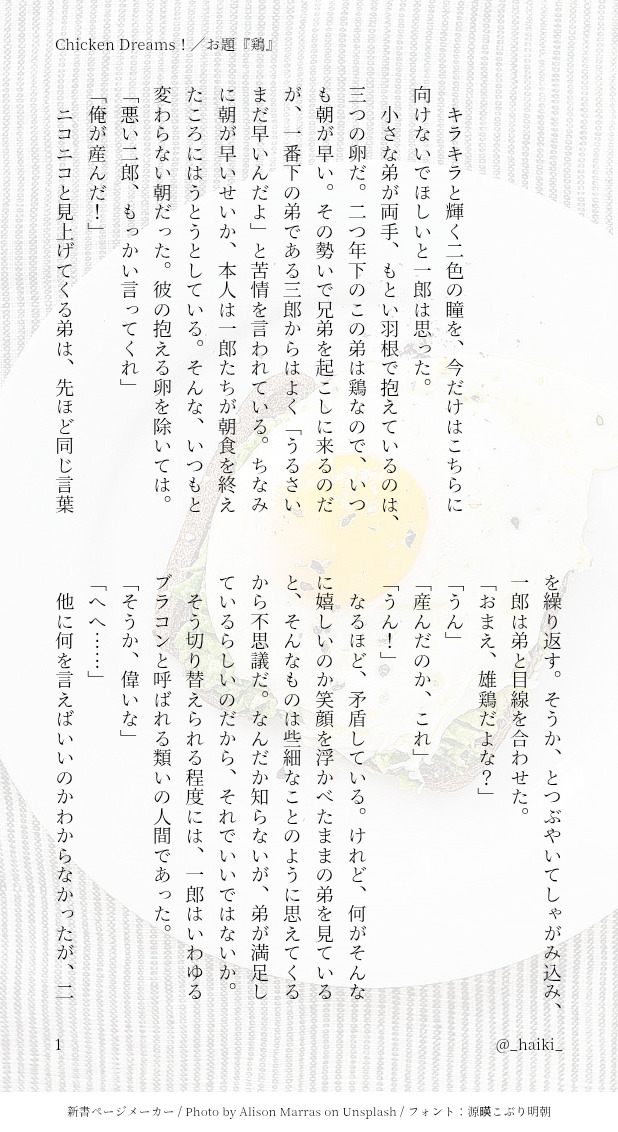 Chicken Dreams！／お題『鶏』
キラキラと輝く二色の瞳を、今だけはこちらに
向けないでほしいと一郎は思った。
小さな弟が両手、もとい羽根で抱えているのは、
三つの卵だ。二つ年下のこの弟は鶏なので、いつ
も朝が早い。その勢いで兄弟を起こしに来るのだ
が、一番下の弟である三郎からはよく「うるさい
まだ早いんだよ」と苦情を言われている。ちなみ
に朝が早いせいか、本人は一郎たちが朝食を終え
たころにはうとうとしている。そんな、いつもと
変わらない朝だった。彼の抱える卵を除いては。
「悪い二郎、もっかい言ってくれ」
「俺が産んだ！」
ニコニコと見上げてくる弟は、先ほど同じ言葉
を繰り返す。そうか、とつぶやいてしゃがみ込み、
一郎は弟と目線を合わせた。
「おまえ、雄鶏だよな？」
「うん」
「産んだのか、これ」
「うん！」
なるほど、矛盾している。けれど、何がそんな
に嬉しいのか笑顔を浮かべたままの弟を見ている
と、そんなものは些細なことのように思えてくる
から不思議だ。なんだか知らないが、弟が満足し
ているらしいのだから、それでいいではないか。
そう切り替えられる程度には、一郎はいわゆる
ブラコンと呼ばれる類いの人間であった。
「そうか、偉いな」
「へへ……」
他に何を言えばいいのかわからなかったが、二
1
@_haiki_
新書ページメーカー / Photo by Alison Marras on Unsplash / フォント：源暎こぶり明朝